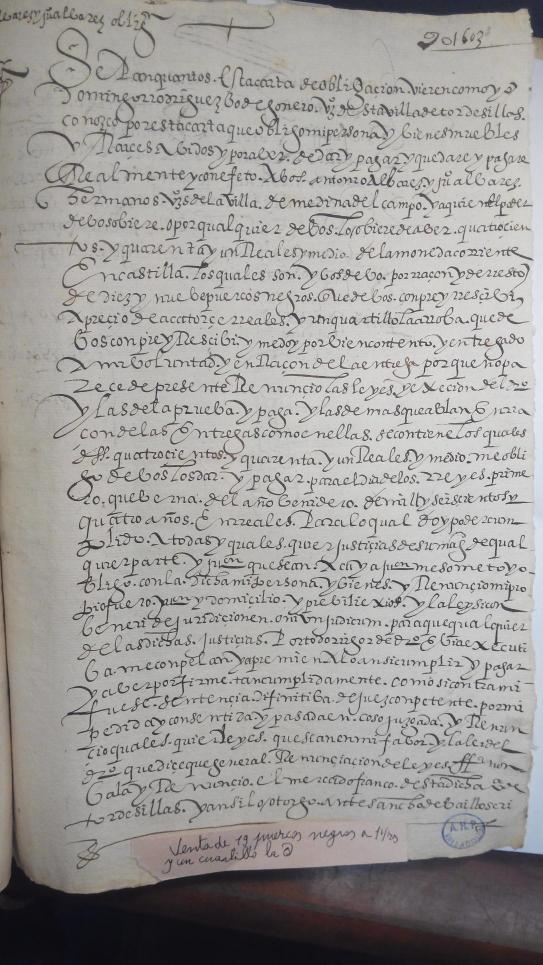 Albarez y juº albarez obligon
20 1603
Sepan quantos. esta carta de obligacion. vieren como yo
domingo rrodriguez bodegonero. vº desta villa de tordesillas.
conozco por esta carta que obligo mi persona y bienes muebles
y Raices abidos y por aber. de dar y pagar y que dare y pagare
Realmente y con efeto. a bos. antonio Albarez. y juº albarez.
hermanos. vºs de la villa. de medina del campo. y a quien el poder
de bos obiere. o por qualquier de bos. lo obiere de aber. quatrocien
tos. y quarenta y un Reales y medio. de la moneda corriente
En castilla. los quales son. y bos debo. por raçon y de rresto
de diez y nuebe puercos negros. que de bos. conpre y rrescibi
a precio de a catorçe rreales. y un quartillo la arroba. que de
bos conpre y Rescibi y me doy por bien contento. y entregado
a mi boluntad. y en Raçon de la entrega porque no pa
reze de presente Renuncio las leyes. y exeçion del drº
y las de la prueba. y paga. y las demas que ablan En rra
con de las Entregas como en ellas. se contiene los quales
dhos. quatrocientos. y quarenta. y un Reales y medio. me obli
go de bos los dar. y pagar. para el dia de los. rreyes. prime
ro. que berna. del año benidero. de mill y seiscientos y
quatro años. En rreales. Para lo qual doy poder cum
plido. a todas y quales. quier justiçias de su magd. de qual
quier parte. y juon que sean. a cuya juon me someto y o
bligo. con la dicha mi persona. y bienes. y Renuncio mi pro
pio fuero. juon y domicilio. y prebilexio. y la ley sicon
benerit de juridicionen. oniun judicun. para que qualquier
de las dichas. justicias. Por todo rrigor de drº. E bia executi
ba. me conpelan. y apremien a lo ansi cumplir y pagar
y aber por firme tan cumplidamente. como si contra mi
fuese. sentencia. difinitiba. de juez conpetente. por mi
pedida y consentida y pasada en. cosa juzgada. y Renun
cio quales. quier leyes. que sean en mi fabor. y la lei del
drº que diçe que general. Renunciacion de leyes. ffa non
bala y Renuncio. el mercado franco. desta dicha vª de
tordesillas. y ansi lo otorgo. ante sancho de baillo scri
Venta de 19 puercos negros a 14 rs
y un cuartillo la @
A.H.P.
VALLADOLID